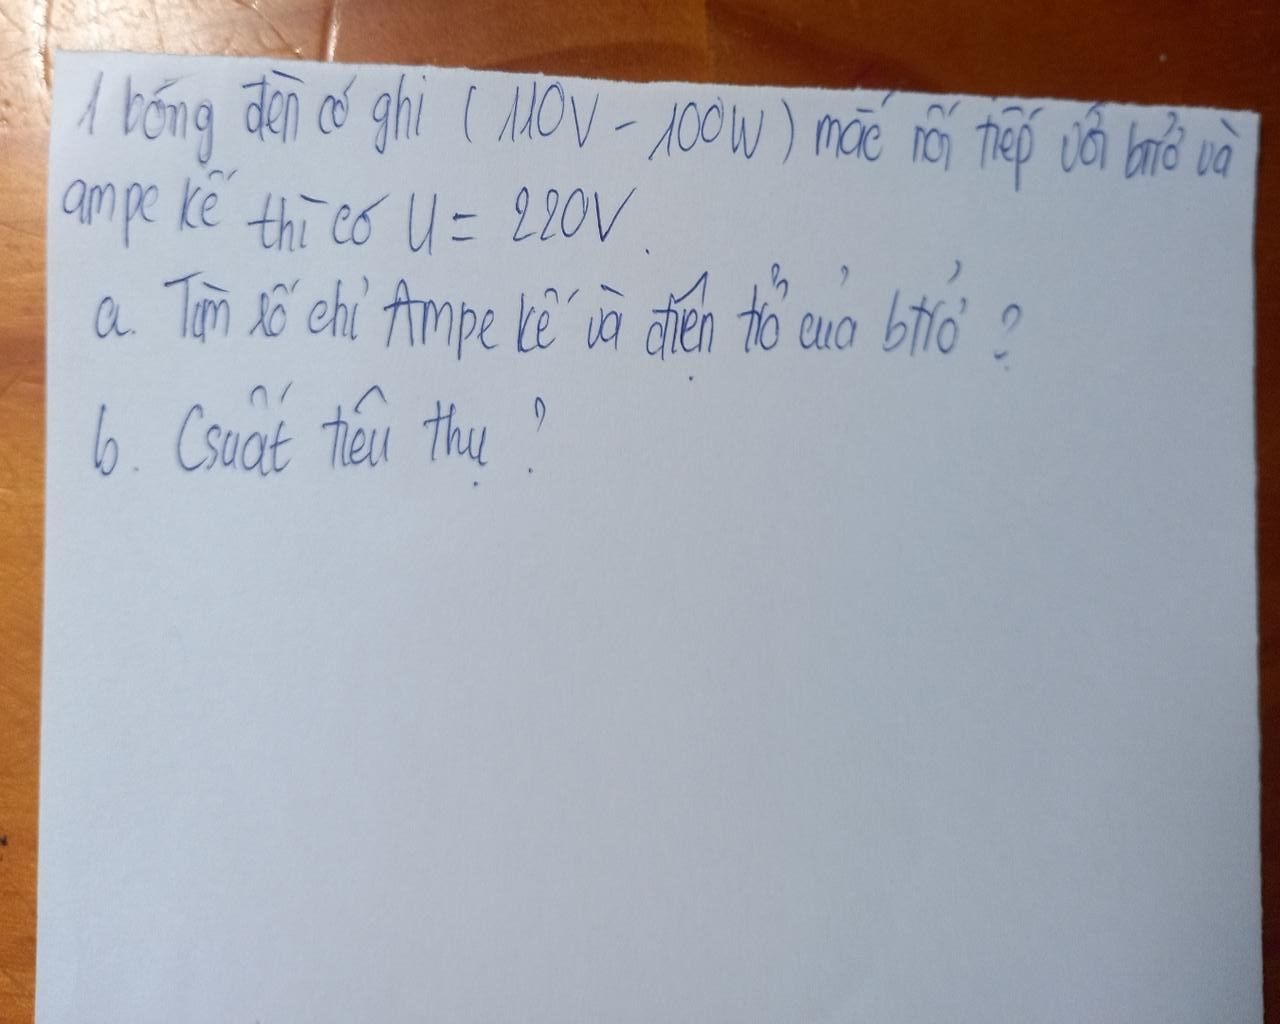 1 bóng đèn có ghi (110V - 100W) mắc nối tiếp với btrở và
ampe kế thì có U = 220V.
a. Tìm số chỉ Ampe kế và điện trở của btrở ?
b. Csuất tiêu thụ ?